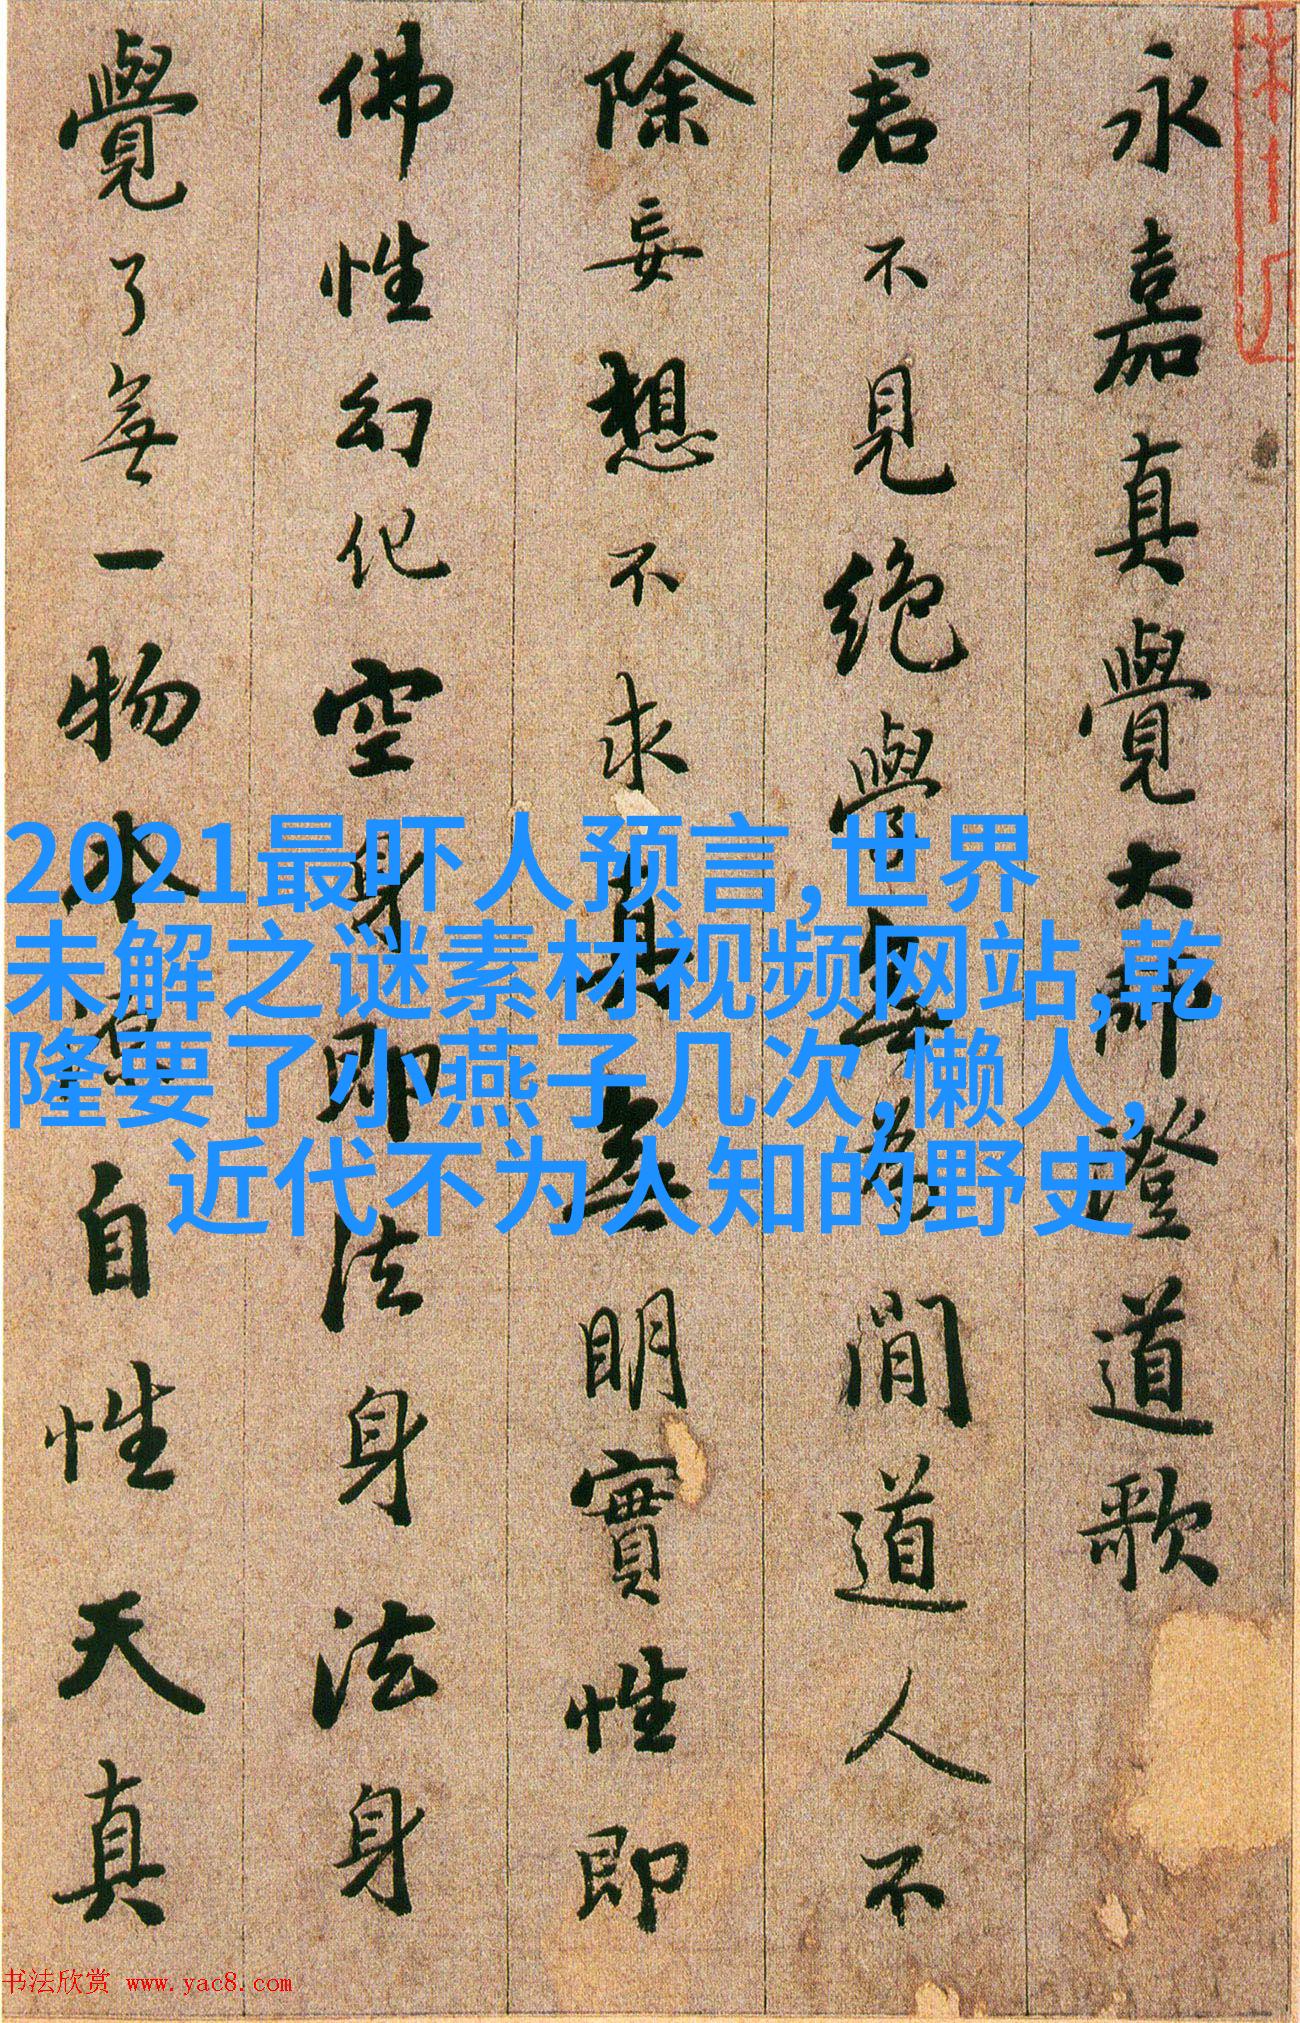 永嘉真覺大師證道歌
君不見絕學無為閒道人不
除妄想不求真無明實性即
佛性幻化空身即法身法身
覺了無一物本源自性天真
2021最吓人预言,世界
未解之谜素材视频网站,乾
隆要了小燕子几次,懒人,
近代不为人知的野史
书法欣赏 www.yac8.com